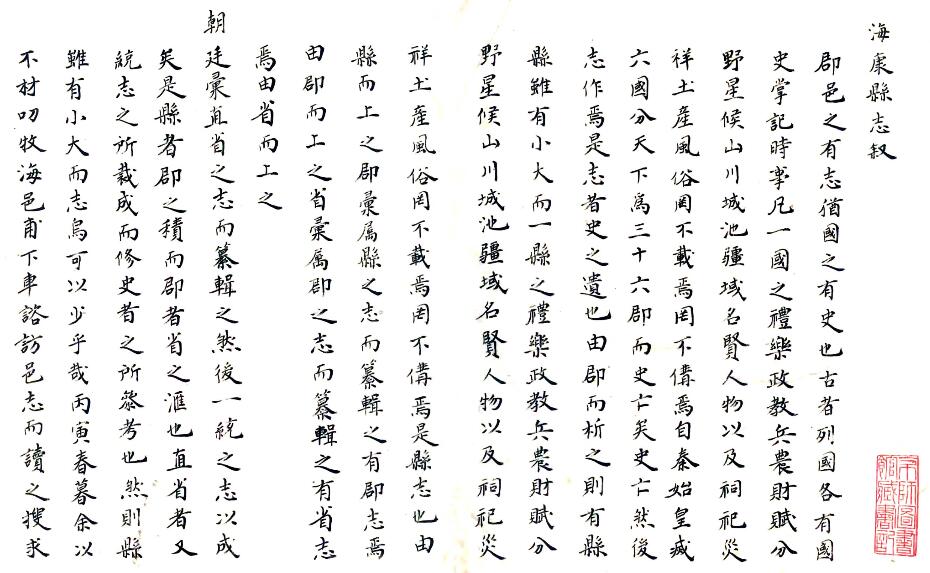 海康縣志叙
郡邑之有志猶國之有史也古者列國各有國
史掌記時事凡一國之禮樂政教兵農財賦分
野星候山川城池疆域名賢人物以及祠祀災
祥土產風俗罔不載焉罔不備焉自秦始皇滅
六國分天下為三十六郡而史亡矣史亡然後
志作焉是志者史之遺也由郡而析之則有縣
縣雖有小大而一縣之禮樂政教兵農財賦分
野星候山川城池疆域名賢人物以及祠祀災
祥土產風俗罔不載焉罔不備焉是縣志也由
縣而上之郡彙属縣之志而纂輯之有郡志焉
由郡而上之省彙属郡之志而纂輯之有省志
焉由省而上之
朝廷彙直省之志而纂輯之然後一統之志以成
矣是縣者郡之積而郡者省之滙也直省者又
統志之所裁成而修史者之所叅考也然則縣
雖有小大而志烏可以少乎哉丙寅春暮余以
不材叨牧海邑甫下車諮訪邑志而讀之搜求